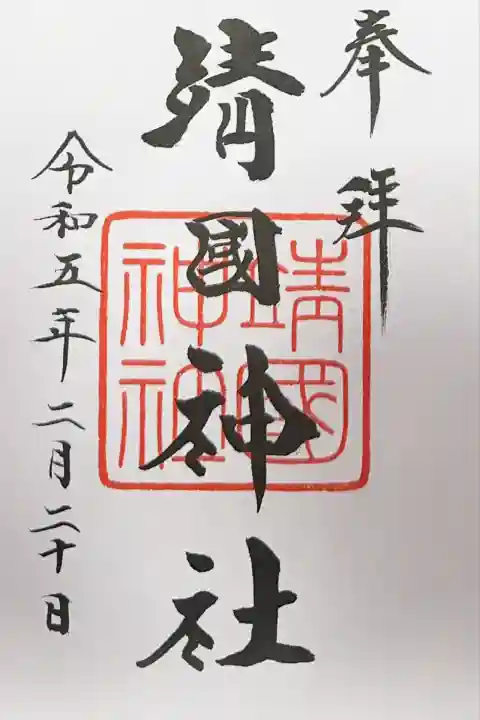 奉拝
靖國神社
靖國
神社
令和五年二月二十日